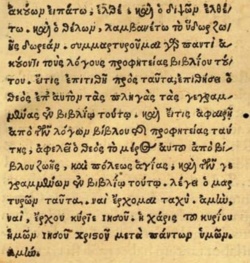 ἀκούων εἰπάτω, ἐλθέ· καὶ ὁ διψῶν ἐλθέ
τω. καὶ ὁ θέλων, λαμβανέτω τὸ ὕδωρ ζω
ῆς δωρεάν. συμμαρτυροῦμαι γὰρ παντὶ ἀ
κούοντι τοὺς λόγους προφητείας βιβλίου τού
του. εἴτις ἐπιτιθῇ πρὸς ταῦτα, ἐπιθήσει ὁ
θεὸς ἐπ' αὐτὸν τὰς πληγὰς τὰς γεγραμ
μένας ἐν βιβλίῳ τούτῳ. καὶ εἴτις ἀφαιρῇ
ἀπὸ τῶν λόγων βίβλου τῆς προφητείας ταύ
της, ἀφελεῖ ὁ θεὸς τὸ μέρος αὐτοῦ ἀπὸ
βίβλου ζωῆς, καὶ πόλεως ἁγίας, καὶ τῶν γε
γραμμένων ἐν βιβλίῳ τούτῳ. λέγει ὁ μαρ
τυρῶν ταῦτα. ναὶ ἔρχομαι ταχύ. ἀμήν.
ναὶ, ἔρχου κύριε ἰησοῦ. ἡ χάρις τοῦ κυρίου
ἡμῶν ἰησοῦ χριστοῦ μετὰ πάντων ὑμῶν.
ἀμήν.